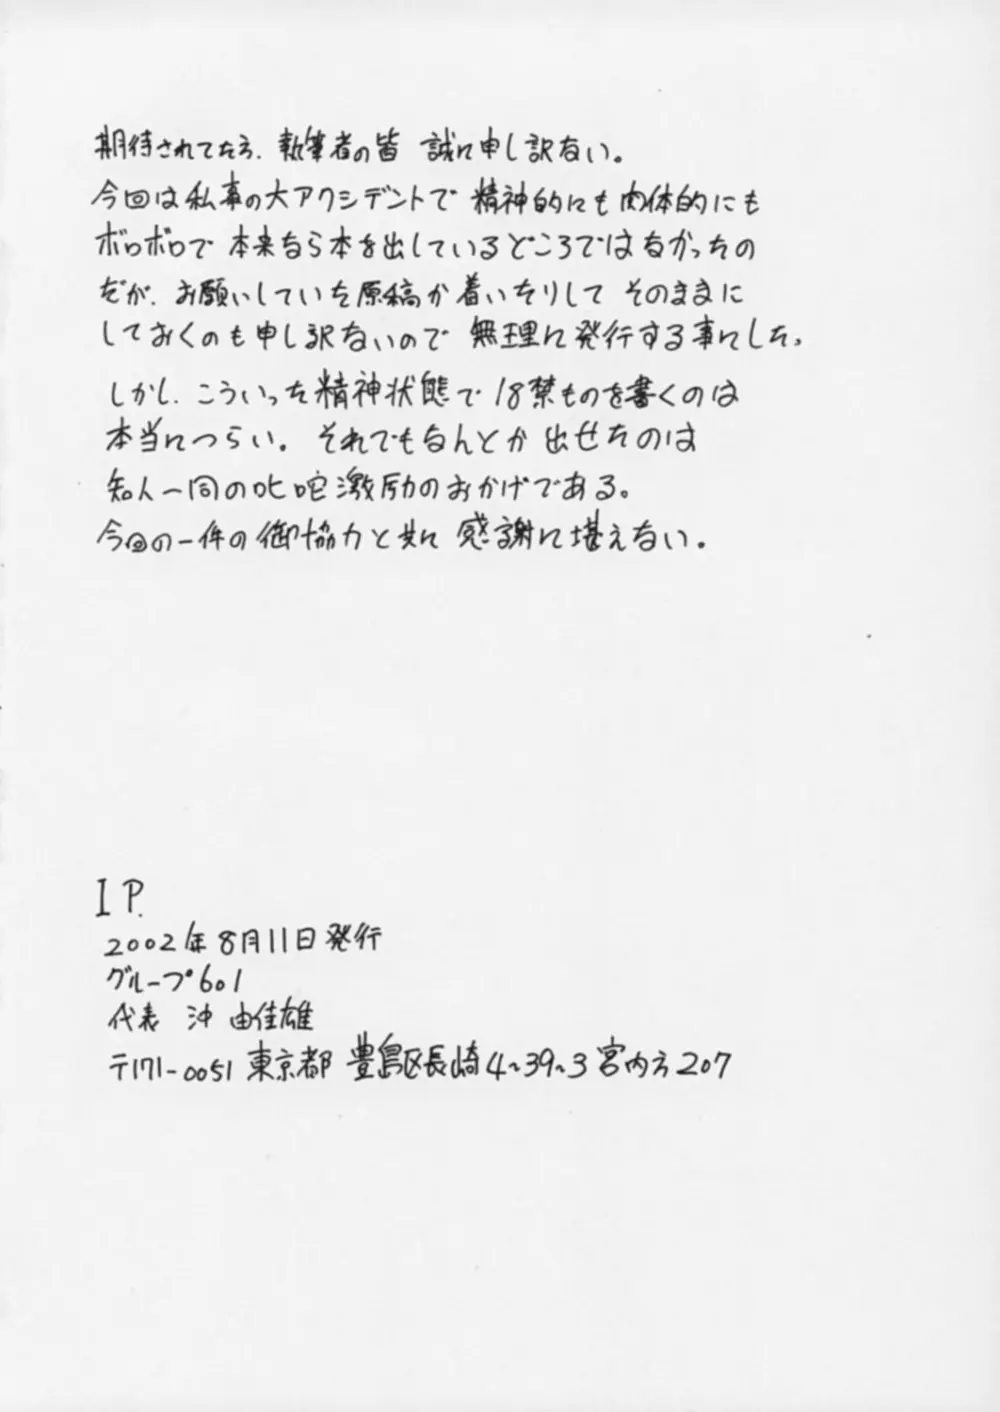 期待されてた方、執筆者の皆 誠に申し訳ない。
今回は私事の大アクシデントで 精神的にも肉体的にも
ボロボロで 本来なら本を出しているどころではなかったの
だが、お願いしていた原稿が着いたりして そのままに
しておくのも申し訳ないので 無理に発行する事にした。
しかし、こういった精神状態で 18禁ものを書くのは
本当につらい。 それでもなんとか 出せたのは
知人一同の叱咤激励のおかげである。
今回の一件の御協力と共に 感謝に堪えない。
I P.
2002年8月11日発行
グループ601
代表 沖 由佳雄
〒171-0051 東京都 豊島区長崎4~39~3 宮内方207